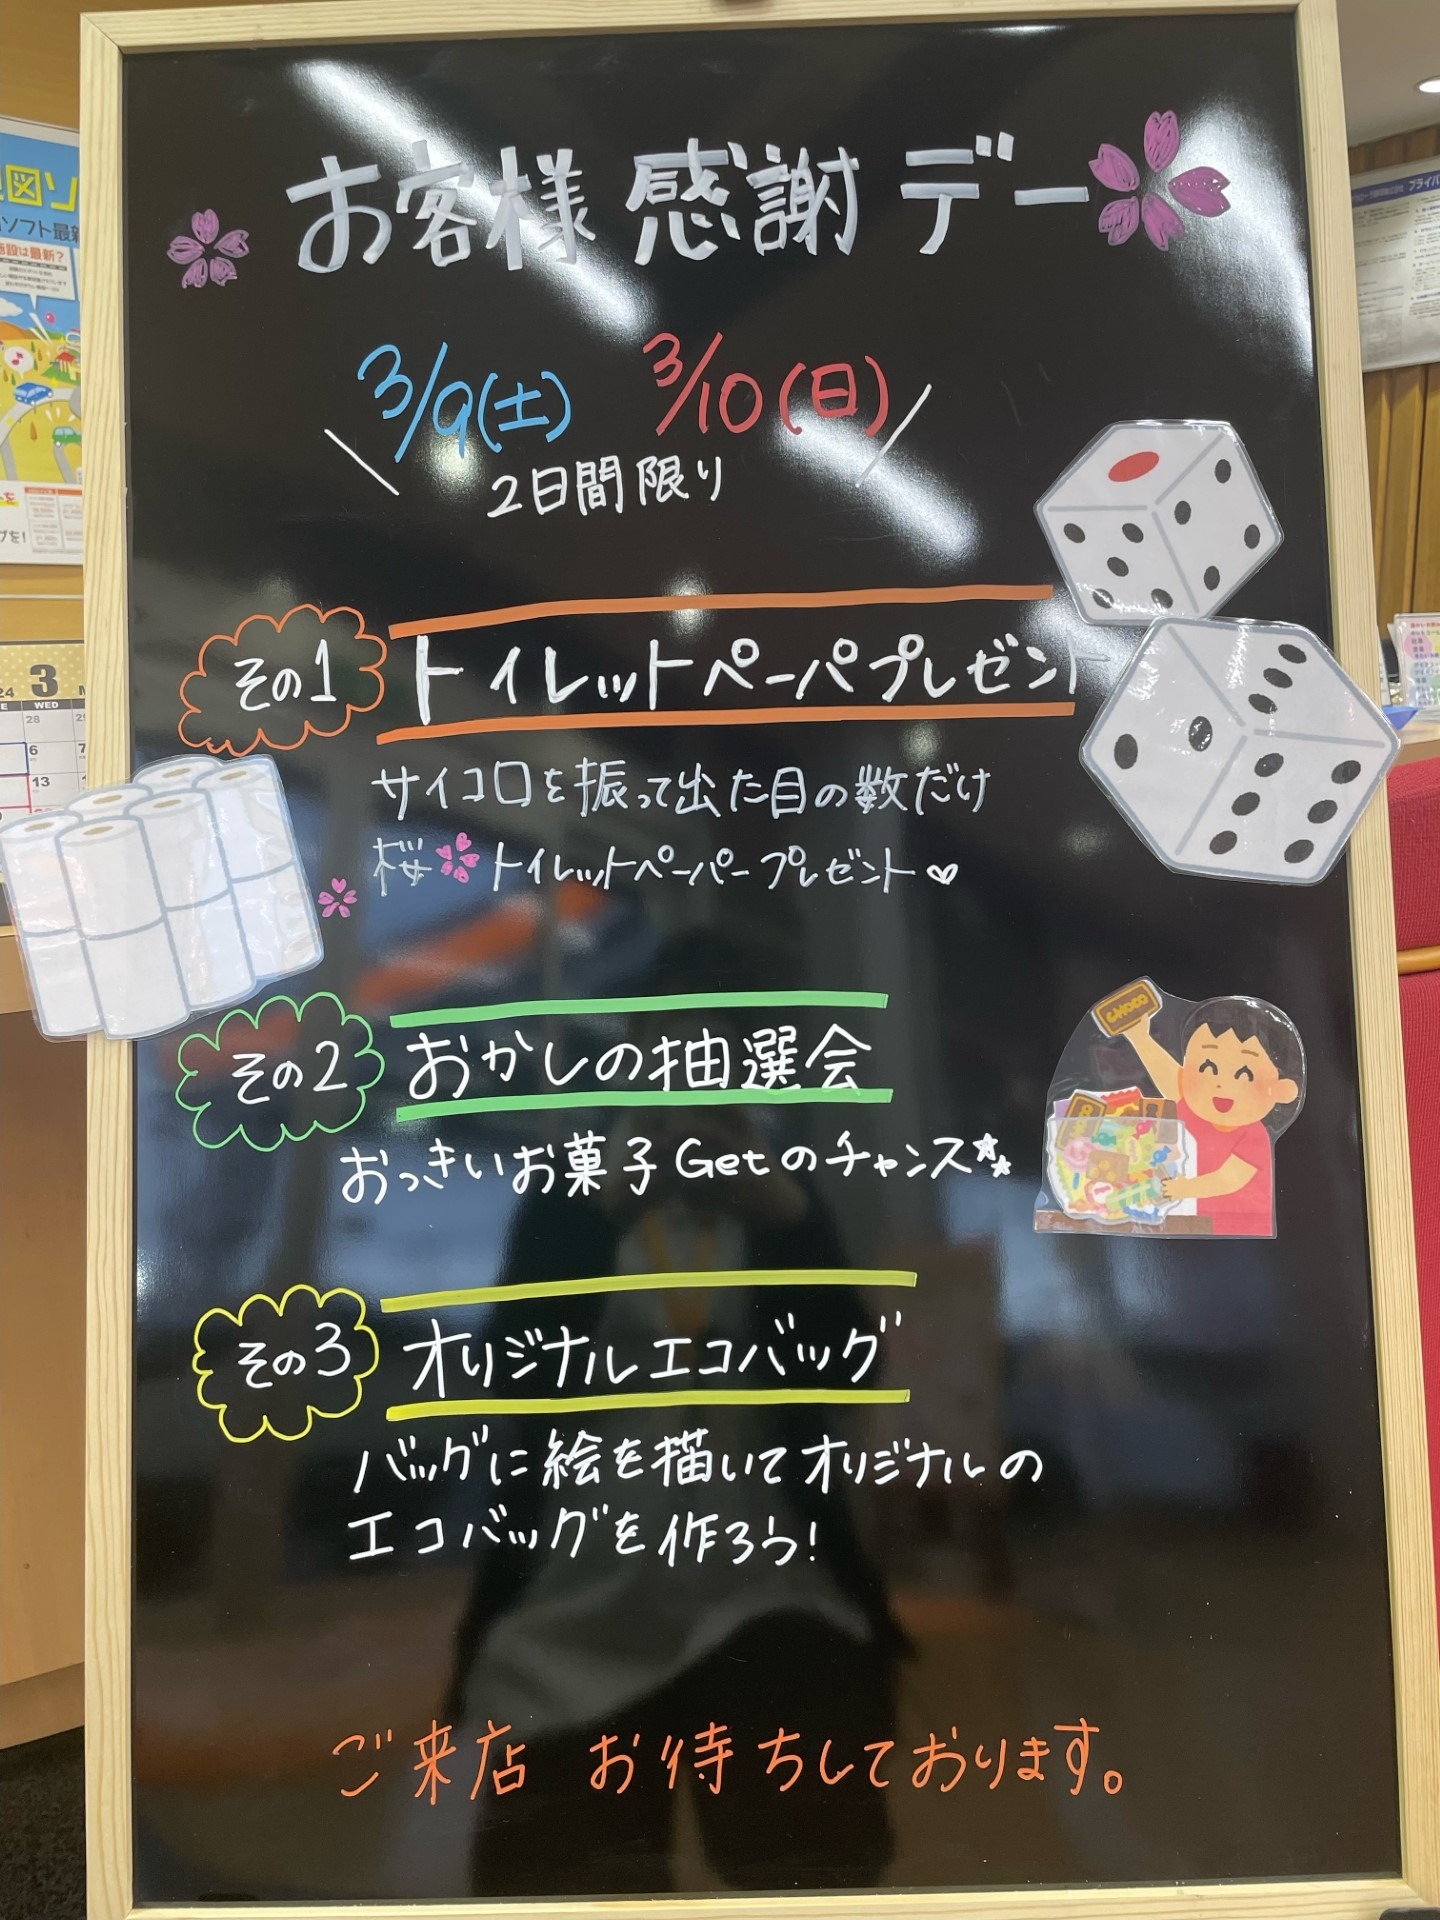 お客様 感謝 デー
3/9(土) 3/10(日)
2日間限り
その1 トイレットペーパプレゼント
サイコロを振って出た目の数だけ
桜 トイレットペーパープレゼント♡
その2 おかしの抽選会
おっきいお菓子Getのチャンス
CHOCO
その3 オリジナルエコバッグ
バッグに絵を描いてオリジナルの
エコバッグを作ろう!
ご来店 お待ちしております。
図ソ
ソフト最新
施設は最新?
プライバ
24 3
WED
28
6 7
13